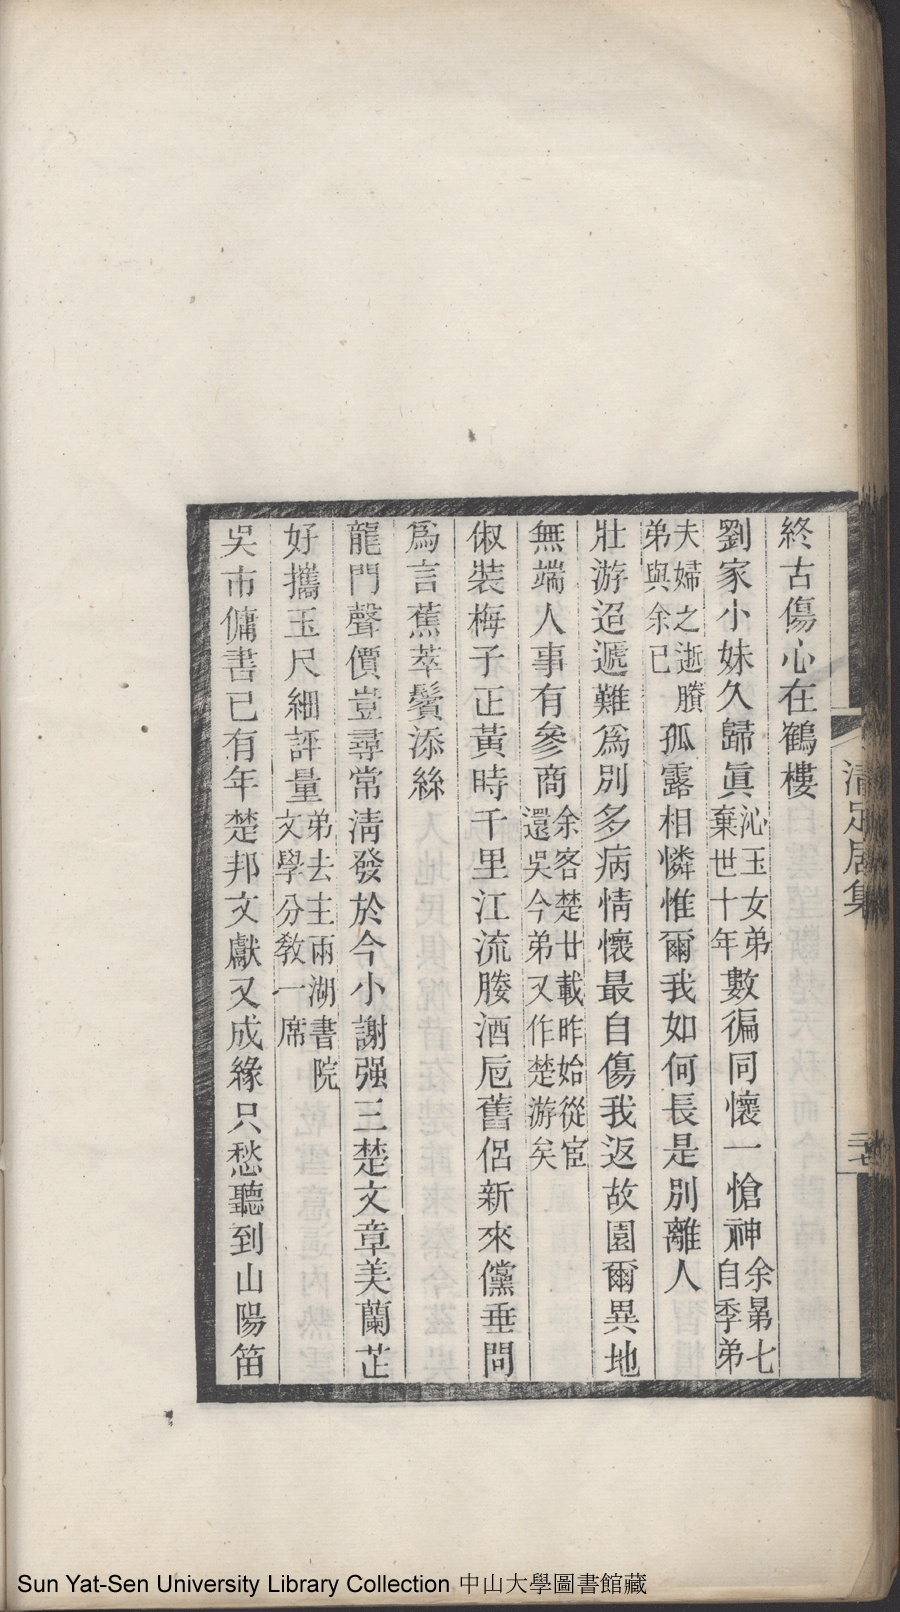 終古傷心在鶴樓
劉家小妹久歸眞沁玉女弟棄世十年數徧同懷一愴神余第七自季弟
夫婦之逝賸弟與余已孤露相憐惟爾我如何長是別離人
壯游迢遞難爲別多病情懷最自傷我返故園爾異地
無端人事有參商余客楚廿載昨始從宦還吳今弟又作楚游矣
俶裝梅子正黃時千里江流賸酒卮舊侶新來儻垂問
爲言蕉萃鬢添絲
龍門聲價豈尋常淸發於今小謝强三楚文章美蘭芷
好攜玉尺細評量弟去主兩湖書院文學分敎一席
吳市傭書已有年楚邦文獻又成緣只愁聽到山陽笛
清足居集
二七
Sun Yat-Sen University Library Collection 中山大學圖書館藏